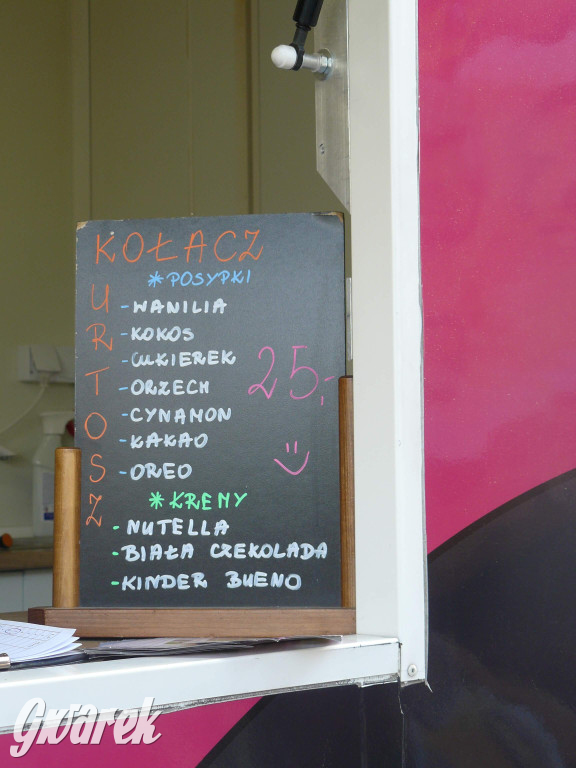 KOŁACZ
KURTOSZ
*POSYPKI
-WANILIA
-KOKOS
-CUKIEREK
-ORZECH
-CYNAMON
-KAKAO
-OREO
25,-
*KREMY
-NUTELLA
-BIAŁA CZEKOLADA
-KINDER BUENO
Gwarek